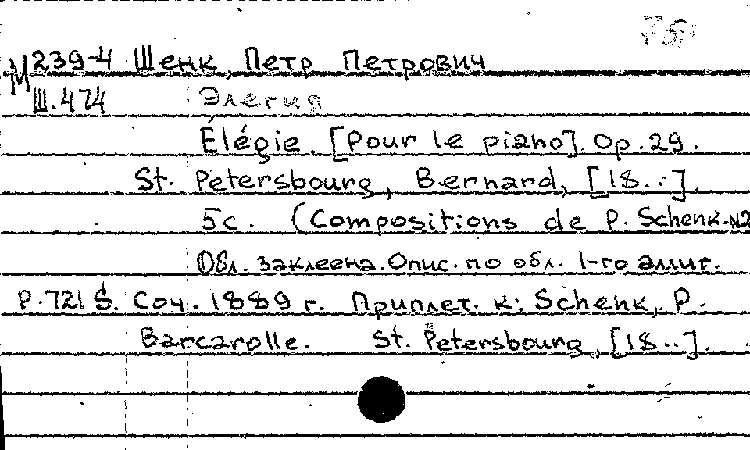 М239-4 Шенк, Петр Петрович
Ш.474 Элегия
Élégie. [Pour le piano]. Op. 29.
St. Petersbourg, Bernard, [18..].
5с. (Compositions de P. Schenk. N2
Обл. заклеена. Опис. по обл. 1-го аллиг.
Р.721 S. Соч. 1889 г. Приплет. к: Schenk, P.
Barcarolle. St. Petersbourg, [18..].